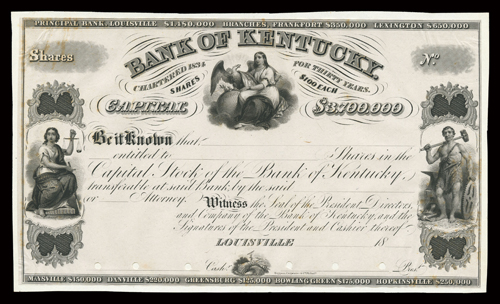 PRINCIPAL BANK, LOUISVILLE $1,480,000 BRANCHES, FRANKFORT $350,000 LEXINGTON $650,000
BANK OF KENTUCKY.
Shares
No
CHARTERED 1834 FOR THIRTY YEARS.
SHARES $100 EACH
CAPITAL $3,700,000
Be it Known that
entitled to Shares in the
Capital Stock of the Bank of Kentucky,
transferable at said Bank by the said
or Attorney. Witness the Seal of the President, Directors,
and Company of the Bank of Kentucky, and the
Signatures of the President and Cashier thereof
LOUISVILLE 18
Cash. Pres.
MAYSVILLE $450,000 DANVILLE $220,000 GREENSBURG $125,000 BOWLING GREEN $175,000 HOPKINSVILLE $250,000